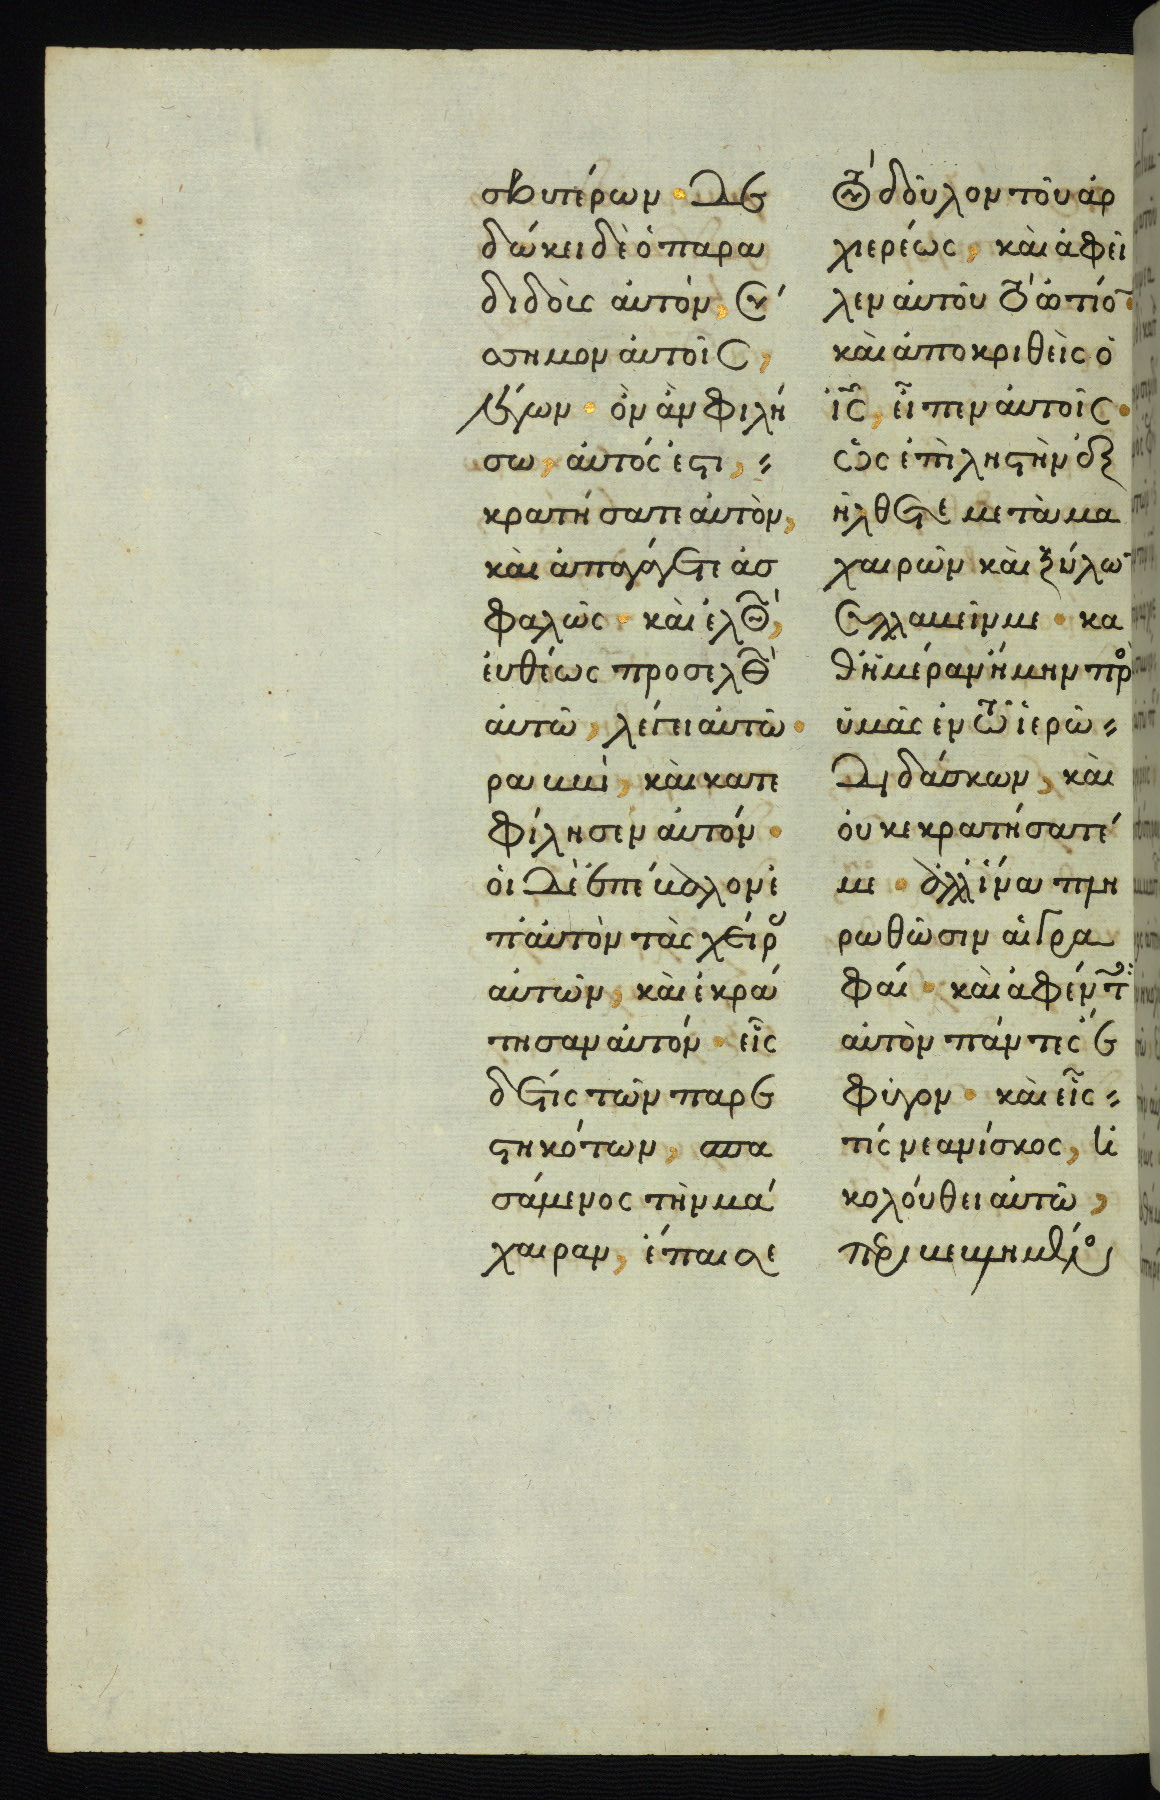 σβυτέρων · δε
δώκει δὲ ὁ παρα
διδοὺς αὐτὸν, σύ
σημον αὐτοῖς,
λέγων · ὃν ἂν φιλή
σω, αὐτός ἐστι,
κρατήσατε αὐτὸν,
καὶ ἀπαγάγετε ἀσ
φαλῶς · καὶ ἐλθὼν,
εὐθέως προσελθὼν
αὐτῶ, λέγει αὐτῶ ·
ραββὶ, καὶ κατε
φίλησεν αὐτόν ·
οἱ δὲ ἐπέβαλον ἐ
π' αὐτὸν τὰς χεῖρας
αὐτῶν, καὶ ἐκρά
τησαν αὐτόν · εἷς
δέ τις τῶν παρε
στηκότων, σπα
σάμενος τὴν μά
χαιραν, ἔπαισε
τὸν δοῦλον τοῦ ἀρ
χιερέως, καὶ ἀφεῖ
λεν αὐτοῦ τὸ ὠτίον ·
καὶ ἀποκριθεὶς ὁ
ἰς, εἶπεν αὐτοῖς ·
ὡς ἐπὶ ληστὴν ἐξ
ήλθετε μετὰ μα
χαιρῶν καὶ ξύλων
συλλαβεῖν με · κα
θ' ἡμέραν ἤμην πρὸς
ὑμᾶς ἐν τῶ ἱερῶ
διδάσκων, καὶ
οὐκ ἐκρατήσατέ
με · ἀλλ' ἵνα πλη
ρωθῶσιν αἱ γρα
φαί · καὶ ἀφέντες
αὐτὸν πάντες ἔ
φυγον · καὶ εἷς
τίς νεανίσκος, ἠ
κολούθει αὐτῶ,
περιβεβλημένος